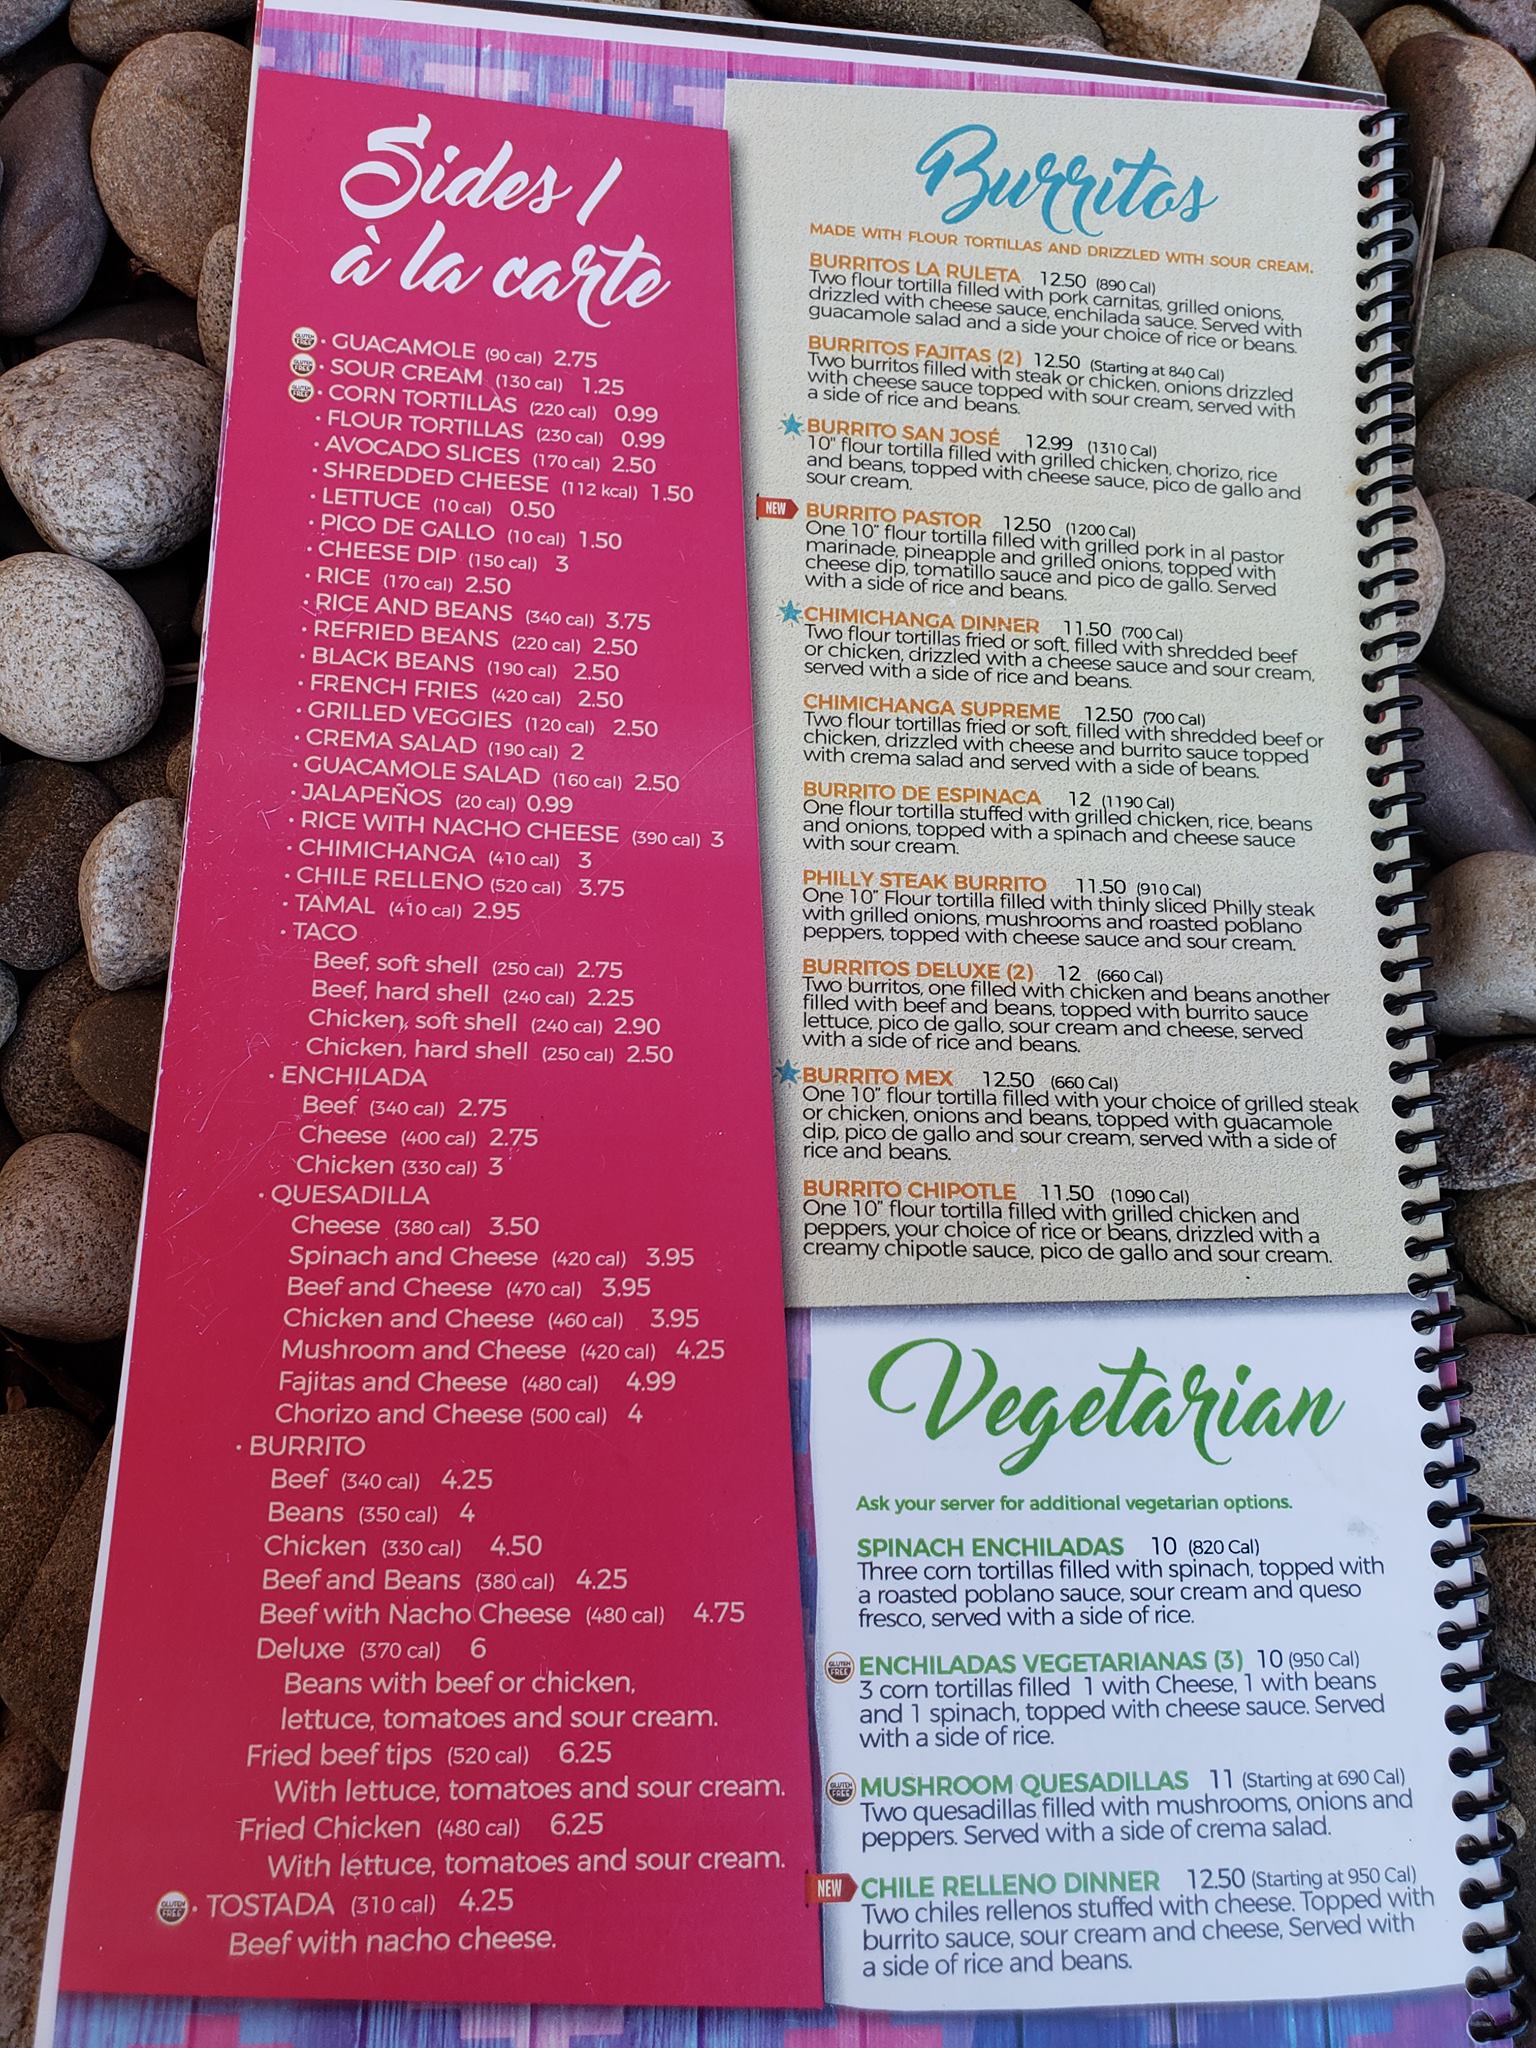 Sides /
à la carte
GLUTEN FREE · GUACAMOLE (90 cal) 2.75
GLUTEN FREE · SOUR CREAM (130 cal) 1.25
GLUTEN FREE · CORN TORTILLAS (220 cal) 0.99
· FLOUR TORTILLAS (230 cal) 0.99
· AVOCADO SLICES (170 cal) 2.50
· SHREDDED CHEESE (112 kcal) 1.50
· LETTUCE (10 cal) 0.50
· PICO DE GALLO (10 cal) 1.50
· CHEESE DIP (150 cal) 3
· RICE (170 cal) 2.50
· RICE AND BEANS (340 cal) 3.75
· REFRIED BEANS (220 cal) 2.50
· BLACK BEANS (190 cal) 2.50
· FRENCH FRIES (420 cal) 2.50
· GRILLED VEGGIES (120 cal) 2.50
· CREMA SALAD (190 cal) 2
· GUACAMOLE SALAD (160 cal) 2.50
· JALAPEÑOS (20 cal) 0.99
· RICE WITH NACHO CHEESE (390 cal) 3
· CHIMICHANGA (410 cal) 3
· CHILE RELLENO (520 cal) 3.75
· TAMAL (410 cal) 2.95
· TACO
Beef, soft shell (250 cal) 2.75
Beef, hard shell (240 cal) 2.25
Chicken, soft shell (240 cal) 2.90
Chicken, hard shell (250 cal) 2.50
· ENCHILADA
Beef (340 cal) 2.75
Cheese (400 cal) 2.75
Chicken (330 cal) 3
· QUESADILLA
Cheese (380 cal) 3.50
Spinach and Cheese (420 cal) 3.95
Beef and Cheese (470 cal) 3.95
Chicken and Cheese (460 cal) 3.95
Mushroom and Cheese (420 cal) 4.25
Fajitas and Cheese (480 cal) 4.99
Chorizo and Cheese (500 cal) 4
· BURRITO
Beef (340 cal) 4.25
Beans (350 cal) 4
Chicken (330 cal) 4.50
Beef and Beans (380 cal) 4.25
Beef with Nacho Cheese (480 cal) 4.75
Deluxe (370 cal) 6
Beans with beef or chicken,
lettuce, tomatoes and sour cream.
Fried beef tips (520 cal) 6.25
With lettuce, tomatoes and sour cream.
Fried Chicken (480 cal) 6.25
With lettuce, tomatoes and sour cream.
GLUTEN FREE · TOSTADA (310 cal) 4.25
Beef with nacho cheese.
Burritos
MADE WITH FLOUR TORTILLAS AND DRIZZLED WITH SOUR CREAM.
BURRITOS LA RULETA 12.50 (890 Cal)
Two flour tortilla filled with pork carnitas, grilled onions,
drizzled with cheese sauce, enchilada sauce. Served with
guacamole salad and a side your choice of rice or beans.
BURRITOS FAJITAS (2) 12.50 (Starting at 840 Cal)
Two burritos filled with steak or chicken, onions drizzled
with cheese sauce topped with sour cream, served with
a side of rice and beans.
BURRITO SAN JOSÉ 12.99 (1310 Cal)
10" flour tortilla filled with grilled chicken, chorizo, rice
and beans, topped with cheese sauce, pico de gallo and
sour cream.
NEW BURRITO PASTOR 12.50 (1200 Cal)
One 10" flour tortilla filled with grilled pork in al pastor
marinade, pineapple and grilled onions, topped with
cheese dip, tomatillo sauce and pico de gallo. Served
with a side of rice and beans.
CHIMICHANGA DINNER 11.50 (700 Cal)
Two flour tortillas fried or soft, filled with shredded beef
or chicken, drizzled with a cheese sauce and sour cream,
served with a side of rice and beans.
CHIMICHANGA SUPREME 12.50 (700 Cal)
Two flour tortillas fried or soft, filled with shredded beef or
chicken, drizzled with cheese and burrito sauce topped
with crema salad and served with a side of beans.
BURRITO DE ESPINACA 12 (1190 Cal)
One flour tortilla stuffed with grilled chicken, rice, beans
and onions, topped with a spinach and cheese sauce
with sour cream.
PHILLY STEAK BURRITO 11.50 (910 Cal)
One 10" Flour tortilla filled with thinly sliced Philly steak
with grilled onions, mushrooms and roasted poblano
peppers, topped with cheese sauce and sour cream.
BURRITOS DELUXE (2) 12 (660 Cal)
Two burritos, one filled with chicken and beans another
filled with beef and beans, topped with burrito sauce
lettuce, pico de gallo, sour cream and cheese, served
with a side of rice and beans.
BURRITO MEX 12.50 (660 Cal)
One 10" flour tortilla filled with your choice of grilled steak
or chicken, onions and beans, topped with guacamole
dip, pico de gallo and sour cream, served with a side of
rice and beans.
BURRITO CHIPOTLE 11.50 (1090 Cal)
One 10" flour tortilla filled with grilled chicken and
peppers, your choice of rice or beans, drizzled with a
creamy chipotle sauce, pico de gallo and sour cream.
Vegetarian
Ask your server for additional vegetarian options.
SPINACH ENCHILADAS 10 (820 Cal)
Three corn tortillas filled with spinach, topped with
a roasted poblano sauce, sour cream and queso
fresco, served with a side of rice.
GLUTEN FREE ENCHILADAS VEGETARIANAS (3) 10 (950 Cal)
3 corn tortillas filled 1 with Cheese, 1 with beans
and 1 spinach, topped with cheese sauce. Served
with a side of rice.
GLUTEN FREE MUSHROOM QUESADILLAS 11 (Starting at 690 Cal)
Two quesadillas filled with mushrooms, onions and
peppers. Served with a side of crema salad.
NEW CHILE RELLENO DINNER 12.50 (Starting at 950 Cal)
Two chiles rellenos stuffed with cheese. Topped with
burrito sauce, sour cream and cheese, Served with
a side of rice and beans.